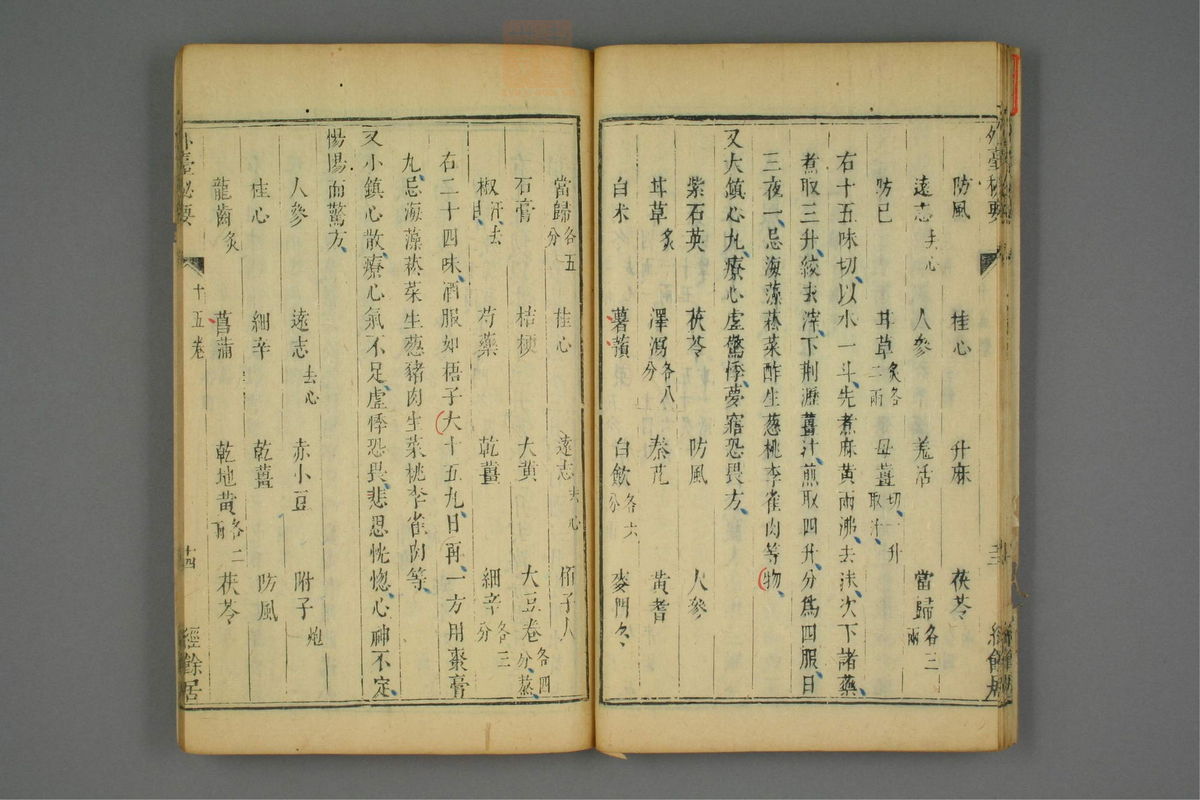 外臺秘要
防風 桂心 升麻 茯苓
遠志去心 人參 羌活 當歸各三兩
防已 甘草炙各二兩 母薑切一升取汁
右十五味切以水一斗先煮麻黃兩沸去沫次下諸藥
煮取三升絞去滓下荆瀝薑汁煎取四升分爲四服日
三夜一忌海藻菘菜酢生葱桃李雀肉等物
又大鎮心丸療心虛驚悸夢寤恐畏方
紫石英 茯苓 防風 人參
甘草炙 澤瀉各八分 秦艽 黃耆
白术 薯蕷 白歛各六分 麥門冬
當歸各五分 桂心 遠志去心 栢子人
石膏 桔梗 大黃 大豆卷各四分蒸
椒汗去目 芍藥 乾薑 細辛各三分
右二十四味酒服如梧子大十五丸日再一方用棗膏
丸忌海藻菘菜生葱豬肉生菜桃李雀肉等
又小鎮心散療心氣不足虛悸恐畏悲思恍惚心神不定
惕惕而驚方
人參 遠志去心 赤小豆 附子炮
桂心 細辛 乾薑 防風
龍齒炙 菖蒲 乾地黃各二兩 茯苓
外臺秘要 十五卷 十四 經餘居